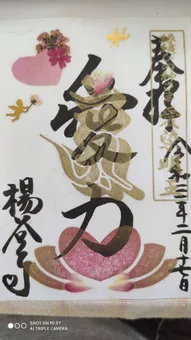 奉拝 令和三年二月十七日
愛力
楊谷寺
SHOT ON MI 9T
AI TRIPLE CAMERA